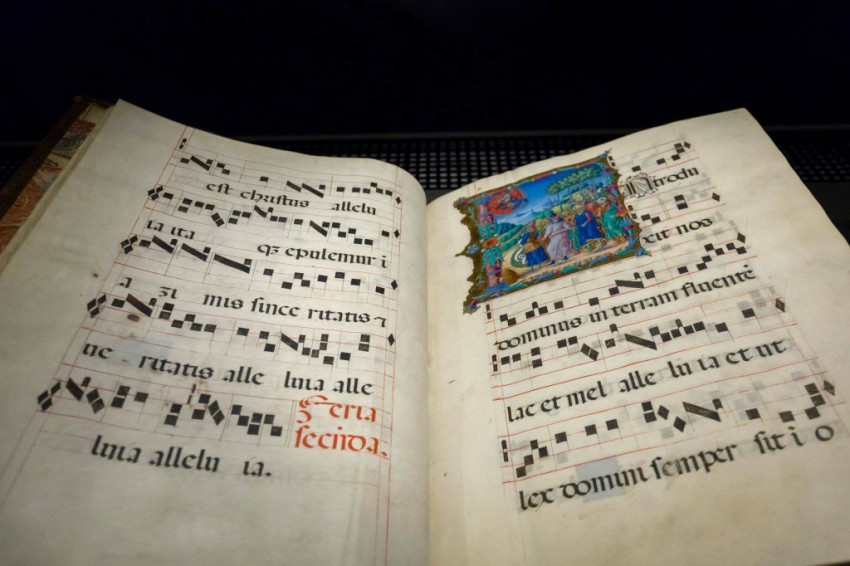 est christus allelu
ia ita qȝ epulemur i
a zi mis since ritatis ⁊
ue ritatis alle luia alle
luia allelu ia.
Feria
secūda.
Ntrodu
xit nos
dominus in terram fluentē
lac et mel alle lu ia et ut
lex domini semper sit i o